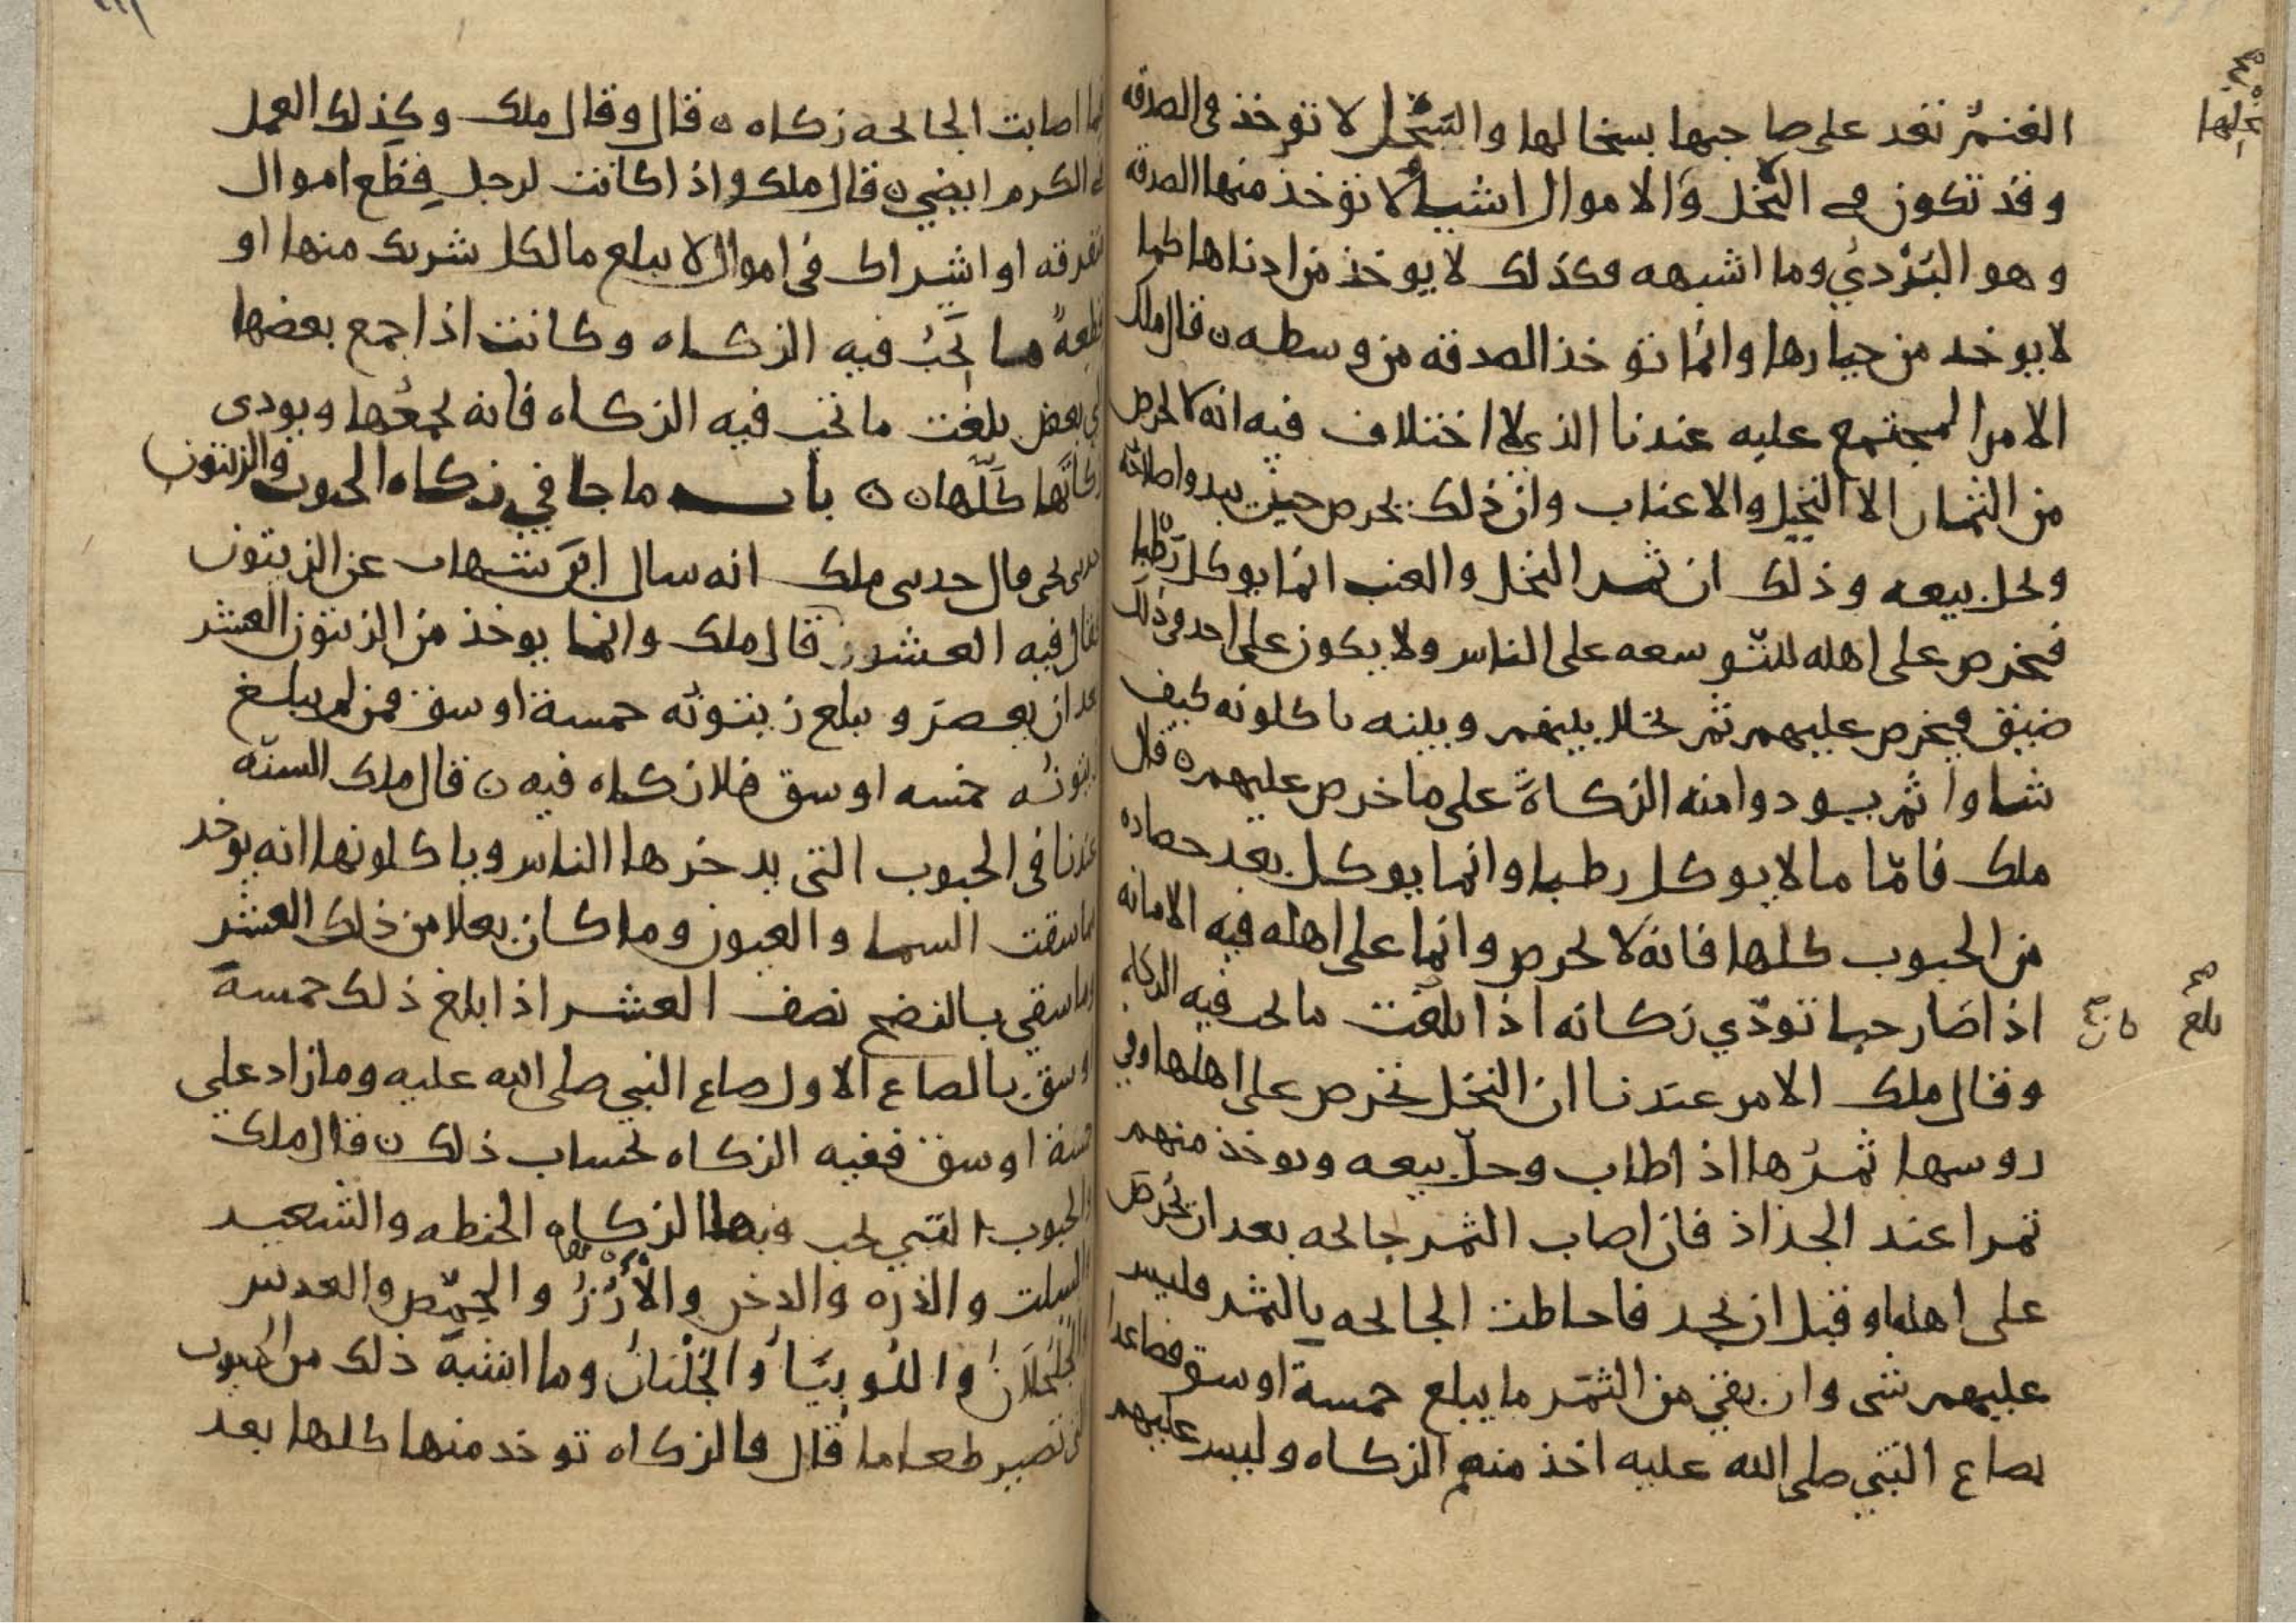 الغنم تعد على صاحبها بسخالها والسخل لا توخذ في الصدقه
وقد تكون في النخل والاموال اشيا لا توخذ منها الصدقه
وهو البردي وما اشبهه وكذلك لا يوخذ من ادناها كما
لا يوخد من خيارها وانما توخذ الصدقه من وسطه ه قال ملك
الامر المجتمع عليه عندنا الذي لا اختلاف فيه انه لا يخرص
من الثمار الا النخيل والاعناب وان ذلك يخرص حين يبدوا صلاحه
ويحل بيعه وذلك ان ثمر النخل والعنب انما يوكل رطبا
فيخرص على اهله للتوسعه على الناس ولا يكون على احد في ذلك
ضيق فيخرص عليهم ثم يخلا بينهم وبينه ياكلونه كيف
شاوا ثم يودوا منه الزكاة على ما خرص عليهم ه قال
ملك فامّا ما لا يوكل رطبا وانما يوكل بعد حصاده
من الحبوب كلها فانه لا يخرص وانما على اهله فيه الامانه
اذا صار حبا تودّي زكاته اذا بلغت ما يجب فيه الزكاه
وقال ملك الامر عندنا ان النخل تخرص على اهلها وفي
روسها ثمرُها اذا طاب وحلّ بيعه ويوخذ منهم
تمرا عند الجذاذ فان اصاب الثمر جائحه بعد ان يخرص
على اهله او قبل ان يجد فاحاطت الجائحه بالثمر فليس
عليهم شى وان بقي من الثمر ما يبلغ خمسة اوسق فصاعدا
بصاع النبي صلى الله عليه اخذ منهم الزكاه وليس عليهم
بلغ
فيما اصابت الجائحه زكاه ه قال وقال ملك وكذلك العمل
في الكرم ايضي ه قال ملك واذا كانت لرجل قِطَع اموال
متفرقه او اشراك في اموال لا يبلغ مال كل شريك منها او
قطعه ما تجب فيه الزكاه وكانت اذا جمع بعضها
الى بعض بلغت ما تجب فيه الزكاه فانه يجمعها ويودى
زكاتها كلّها ه ه باب ما جا في زكاه الحبوب والزيتون
حدثنى يحيى قال حدثنى ملك انه سال ابن شهاب عن الزيتون
فقال فيه العشر ه قال ملك وانما يوخذ من الزيتون العشر
بعد ان يعصر و يبلغ زيتونه خمسة اوسق فمن لم يبلغ
زيتونه خمسه اوسق فلا زكاه فيه ه قال ملك السنّه
عندنا في الحبوب التي يدخرها الناس وياكلونها انه يوخد
مما سقت السما والعيون وما كان بعلا من ذلك العشر
وما سقي بالنضح نصف العشر اذا بلغ ذلك خمسة
اوسق بالصاع الاول صاع النبي صلى الله عليه وما زاد على
خمسة اوسق ففيه الزكاه بحساب ذلك ه قال ملك
والحبوب التي يجب فيها الزكاه الحنطه والشعير
والسلت والذره والدخن والأرُزُ والحِمّص والعدس
والجلجلانُ واللوبيَا والجُلْبَانُ وما اشبه ذلك من الحبوب
التي تصير طعاما قال فالزكاه توخد منها كلها بعد